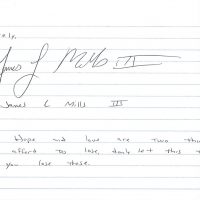 rely,
James L Mills III
James L Mills III
Hope and love are two thin
afford to lose, don't let this t
you lose these.